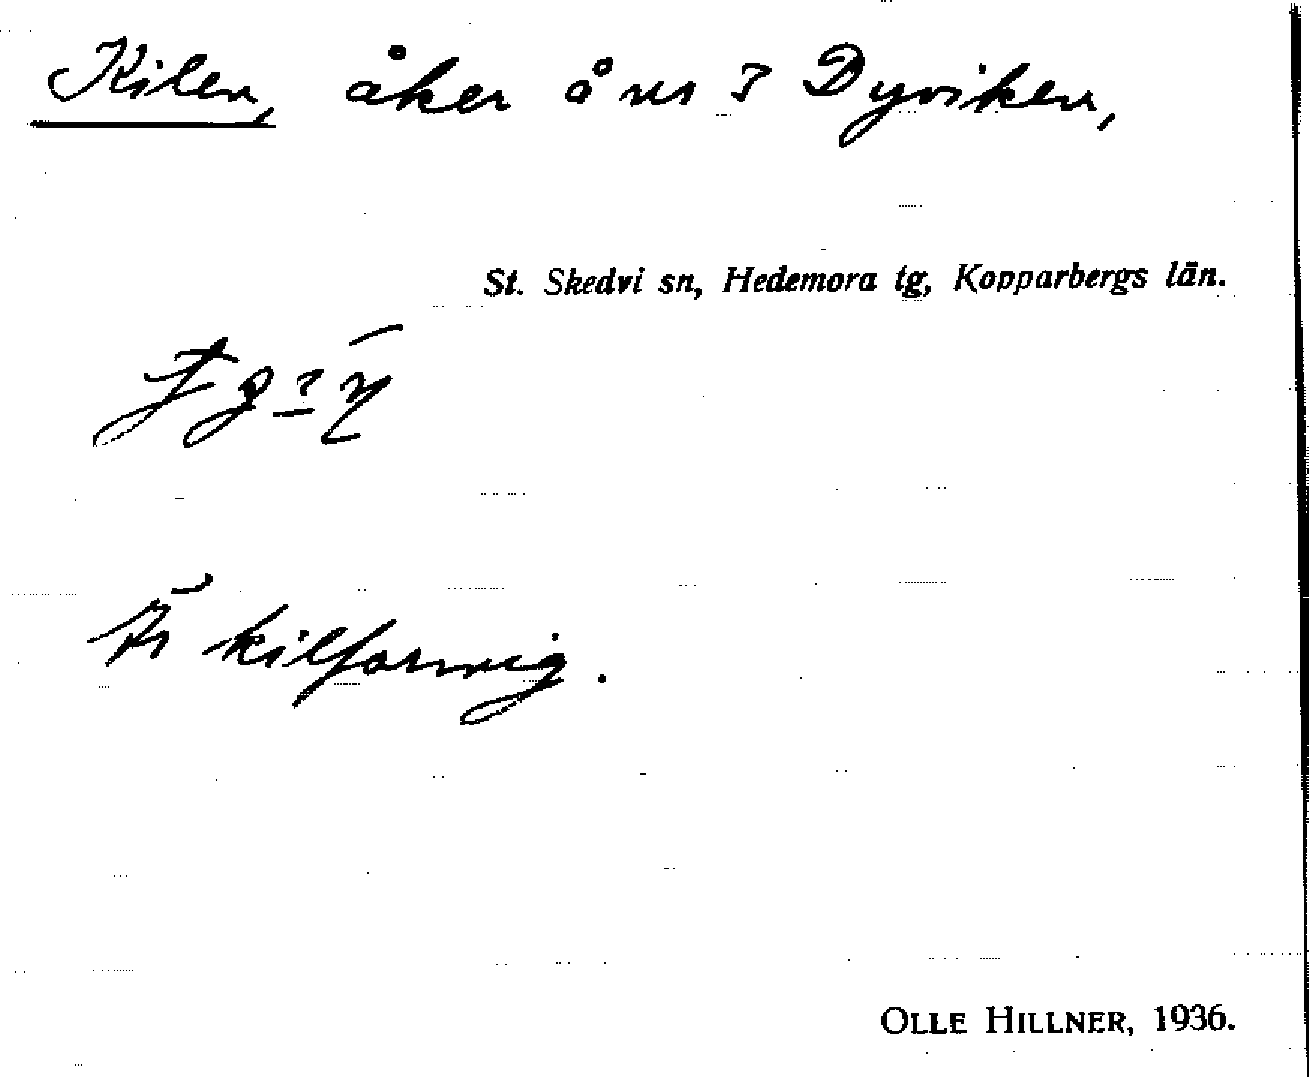 Kilen, åker å nr 3 Dyviken,
St. Skedvi sn, Hedemora tg, Kopparbergs län.
Är kilformig.
OLLE HILLNER, 1936.